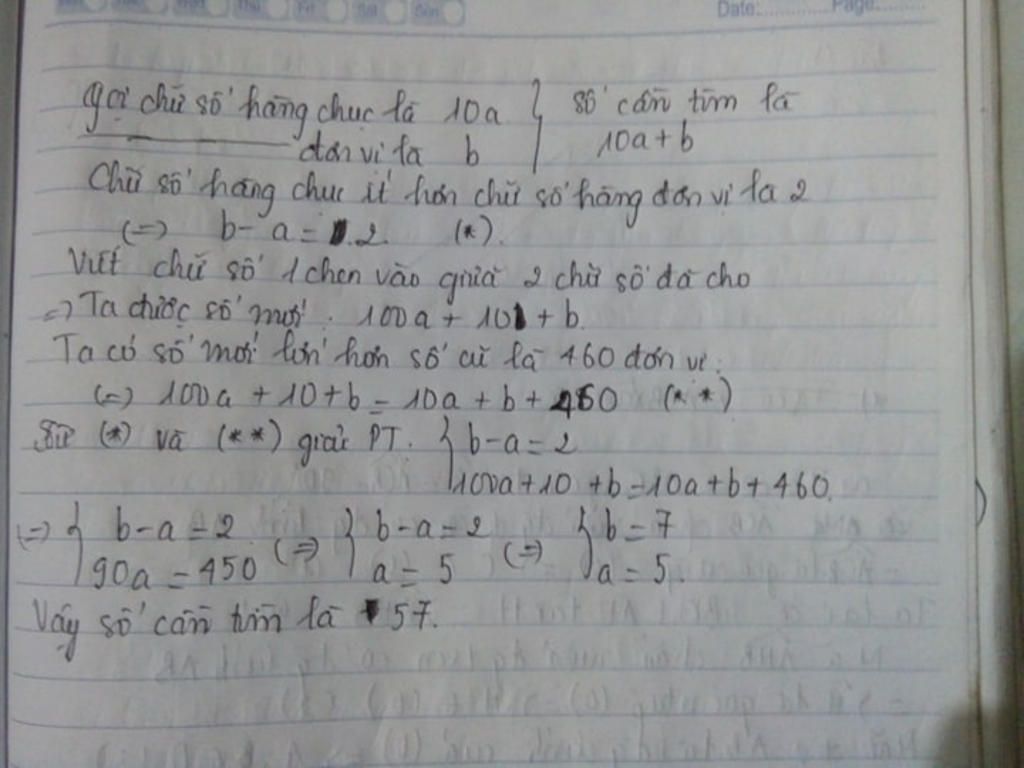 Date:............Page:..........
Gọi chữ số hàng chục là 10a } số cần tìm là
——— đơn vị là b } 10a + b
Chữ số hàng chục ít hơn chữ số hàng đơn vị là 2
(=) b - a = 2. (*).
Viết chữ số 1 chen vào giữa 2 chữ số đã cho
=> Ta được số mới: 100a + 10 + b.
Ta có số mới lớn hơn số cũ là 460 đơn vị:
(=) 100a + 10 + b = 10a + b + 460 (**)
Từ (*) và (**) giải PT. { b - a = 2
100a + 10 + b = 10a + b + 460.
(=) { b - a = 2 (=) { b - a = 2 (=) { b = 7
90a = 450 a = 5 a = 5.
Vậy số cần tìm là 57.